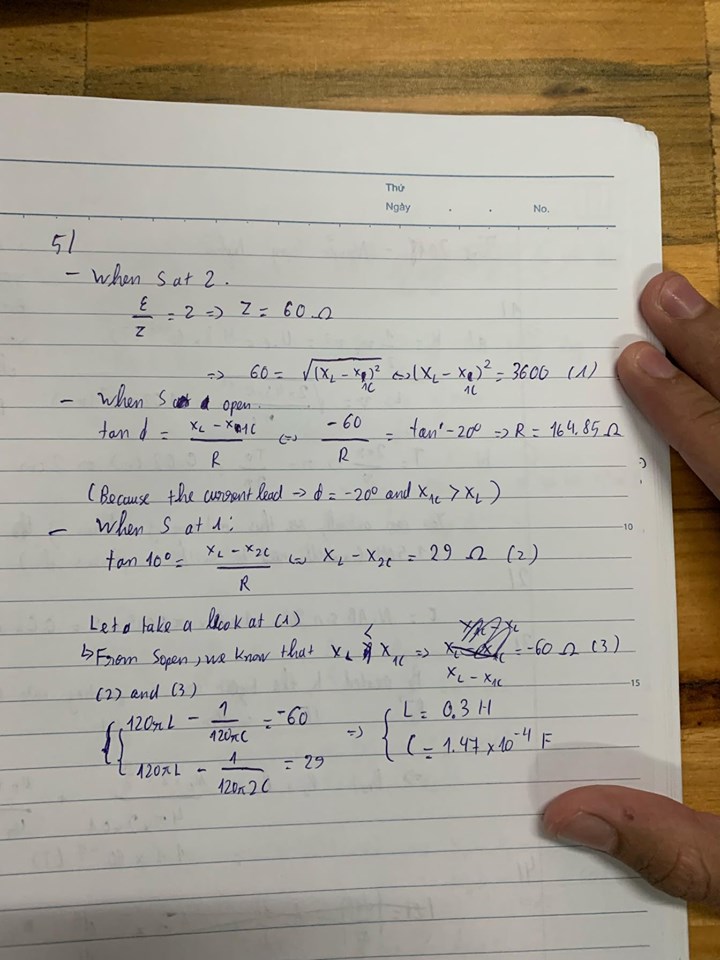 Thứ
Ngày . . No.
5/
- When S at 2.
ε/Z = 2 => Z = 60 Ω
=> 60 = √(X_L - X_1C)² <=> (X_L - X_1C)² = 3600 (1)
- When S open.
tan ϕ = (X_L - X_1C)/R <=> -60/R = tan -20° => R = 164.85 Ω
(Because the current lead -> ϕ = -20° and X_1C > X_L)
- When S at 1:
10
tan 10° = (X_L - X_2C)/R <=> X_L - X_2C = 29 Ω (2)
Let's take a look at (1)
↳ From S open, we know that X_L < X_1C => X_L - X_1C = -60 Ω (3)
15
(2) and (3)
{ 120πL - 1/(120πC) = -60 => { L = 0.3 H
120πL - 1/(120π2C) = 29 C = 1.47 × 10⁻⁴ F